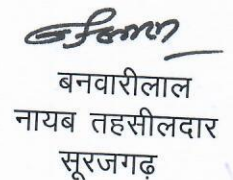 बनवारीलाल
नायब तहसीलदार
सूरजगढ़